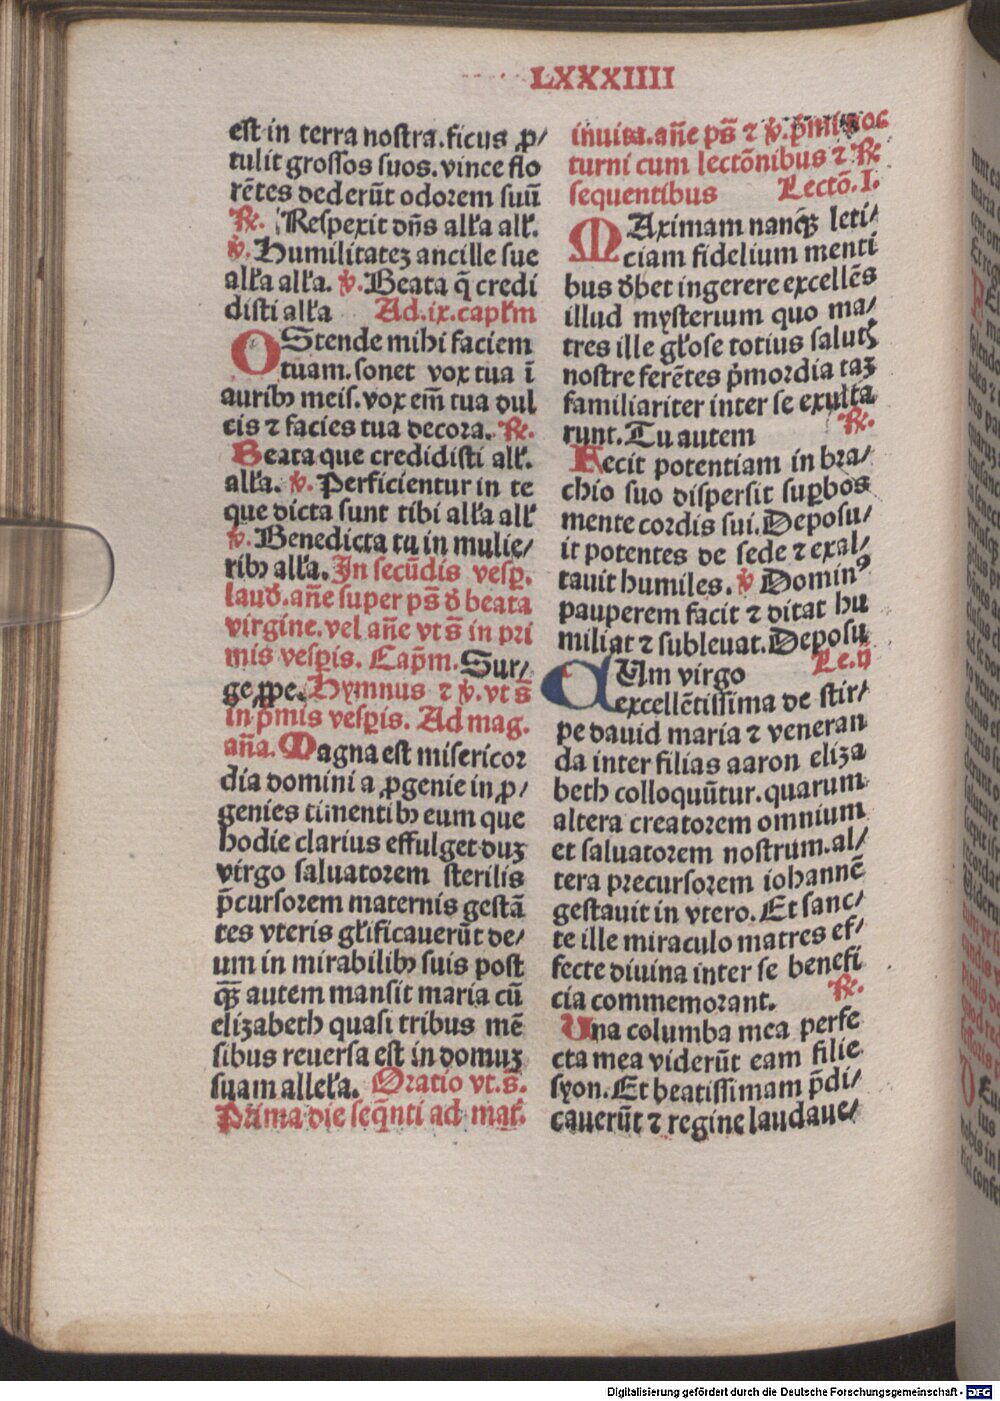 LXXXIIII
est in terra nostra.ficus ꝓ/
tulit grossos suos.vince flo
rētes dederūt odorem suū
℟. Respexit dn̄s alła alł.
℣.Humilitatez ancille sue
alła alła. ℣.Beata q̄ credi
disti alła Ad.ix.capłm
OStende mihi faciem
tuam.sonet vox tua ī
aurib⁹ meis.vox em̄ tua dul
cis ⁊ facies tua decora. ℟.
Beata que credidisti alł.
alła. ℣. Perficientur in te
que dicta sunt tibi alła alł
℣.Benedicta tu in mulie/
rib⁹ alła.In secūdis vesp̄.
laud.añe super ps̄ d̄ beata
virgine.vel añe vt s̄ in pri
mis vesꝑis. Cap̄m.Sur/
ge ꝓpe.Hymnus ⁊ ℣.vt s̄
in p̄mis vesꝑis. Ad mag.
aña.Magna est misericor
dia domini a ꝓgenie in ꝓ/
genies timentib⁹ eum que
hodie clarius effulget duz
virgo saluatorem sterilis
p̄cursorem maternis gestā
tes vteris głificauerūt de/
um in mirabilib⁹ suis post
q̄ꝫ autem mansit maria cū
elizabeth quasi tribus mē
sibus reuersa est in domuz
suam alleła. Oratio vt.s̄.
Prima die seq̄nti ad mat̄.
inuita.añe ps̄ ⁊ ℣.p̄mi noc
turni cum lectōnibus ⁊ ℟
sequentibus Lectō.I.
MAximam nanq̄ꝫ leti/
ciam fidelium menti
bus d̄bet ingerere excellēs
illud mysterium quo ma/
tres ille głose totius saluꝭ
nostre ferētes p̄mordia taꝫ
familiariter inter se exulta
runt.Tu autem ℟.
Fecit potentiam in bra/
chio suo dispersit suꝑbos
mente cordis sui.Deposu/
it potentes de sede ⁊ exal/
tauit humiles. ℣ Domin⁹
pauperem facit ⁊ ditat hu
miliat ⁊ subleuat.Deposu
CUm virgo Le.ij
excellētissima de stir/
pe dauid maria ⁊ veneran
da inter filias aaron eliza
beth colloquūtur.quarum
altera creatorem omnium
et saluatorem nostrum.al/
tera precursorem iohannē
gestauit in vtero.Et sanc/
te ille miraculo matres ef/
fecte diuina inter se benefi
cia commemorant. ℟.
Una columba mea perfe
cta mea viderūt eam filie
syon.Et beatissimam p̄di/
cauerūt ⁊ regine laudaue/
Digitalisierung gefördert durch die Deutsche Forschungsgemeinschaft - DFG